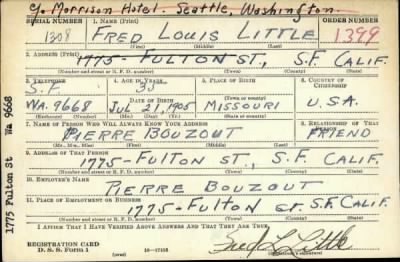 c/o Morrison Hotel. Seattle, Washington.
SERIAL NUMBER 1. NAME (Print) ORDER NUMBER
1308 FRED LOUIS LITTLE 1399
(First) (Middle) (Last)
2. ADDRESS (Print)
1775 - FULTON ST., S.F. CALIF.
(Number and street or R. F. D. number) (Town) (County) (State)
3. TELEPHONE 4. AGE IN YEARS 5. PLACE OF BIRTH 6. COUNTRY OF CITIZENSHIP
S.F. 35
WA. 9668 DATE OF BIRTH MISSOURI U.S.A.
Jul 21, 1905
(Exchange) (Number) (Mo.) (Day) (Yr.) (State or country)
7. NAME OF PERSON WHO WILL ALWAYS KNOW YOUR ADDRESS 8. RELATIONSHIP OF THAT PERSON
PIERRE BOUZOUT FRIEND
(Mr., Mrs., Miss) (First) (Middle) (Last)
9. ADDRESS OF THAT PERSON
1775-FULTON ST., S.F. CALIF.
(Number and street or R. F. D. number) (Town) (County) (State)
10. EMPLOYER'S NAME
PIERRE BOUZOUT
11. PLACE OF EMPLOYMENT OR BUSINESS
1775-FULTON ST. S.F. CALIF.
(Number and street or R. F. D. number) (Town) (County) (State)
I AFFIRM THAT I HAVE VERIFIED ABOVE ANSWERS AND THAT THEY ARE TRUE.
REGISTRATION CARD
D. S. S. Form 1 (over) 16-17105
Fred L Little
(Registrant's signature)
1775 Fulton St Wa 9668